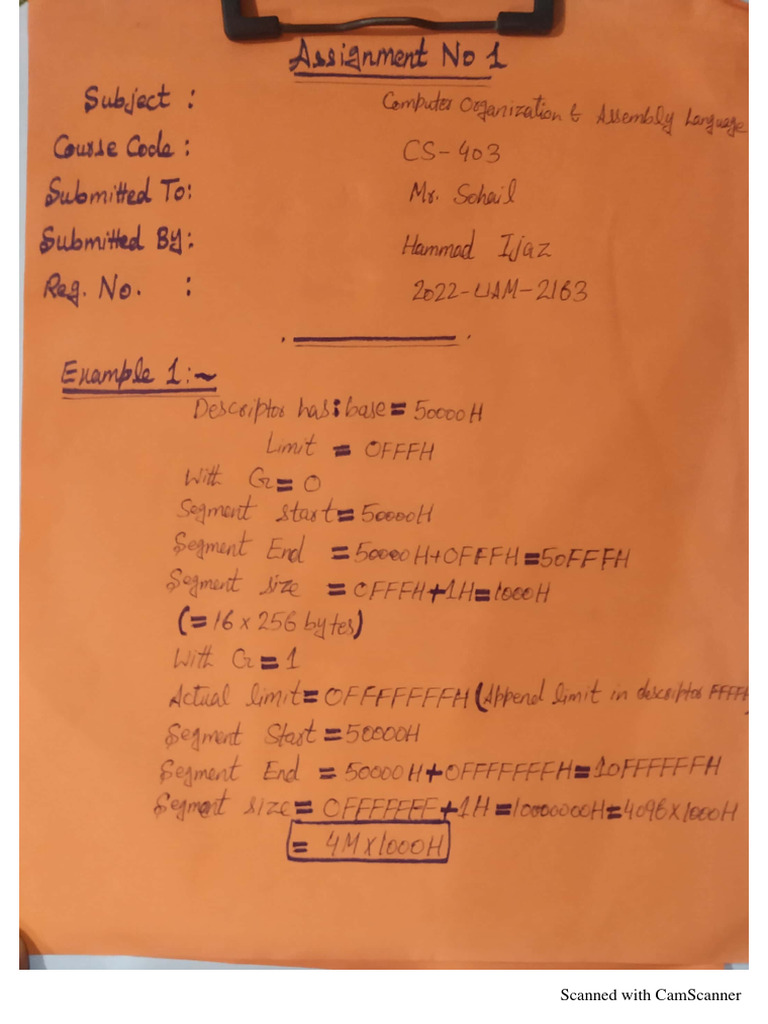 Assignment No 1
Subject : Computer Organization & Assembly Language
Course Code : CS-403
Submitted To: Mr. Sohail
Submitted By: Hammad Ijaz
Reg. No. : 2022-UAM-2163
Example 1:~
Descriptor has: base = 50000H
Limit = 0FFFH
With G = 0
Segment start = 50000H
Segment End = 50000H+0FFFH=50FFFH
Segment size = 0FFFH+1H=1000H
(=16 x 256 bytes)
With G = 1
Actual limit = 0FFFFFFFH (Append limit in descriptor FFFH
Segment Start = 50000H
Segment End = 50000H+0FFFFFFFH=10FFFFFFH
Segment size = 0FFFFFFF+1H=10000000H=4096x1000H
= 4Mx1000H
Scanned with CamScanner